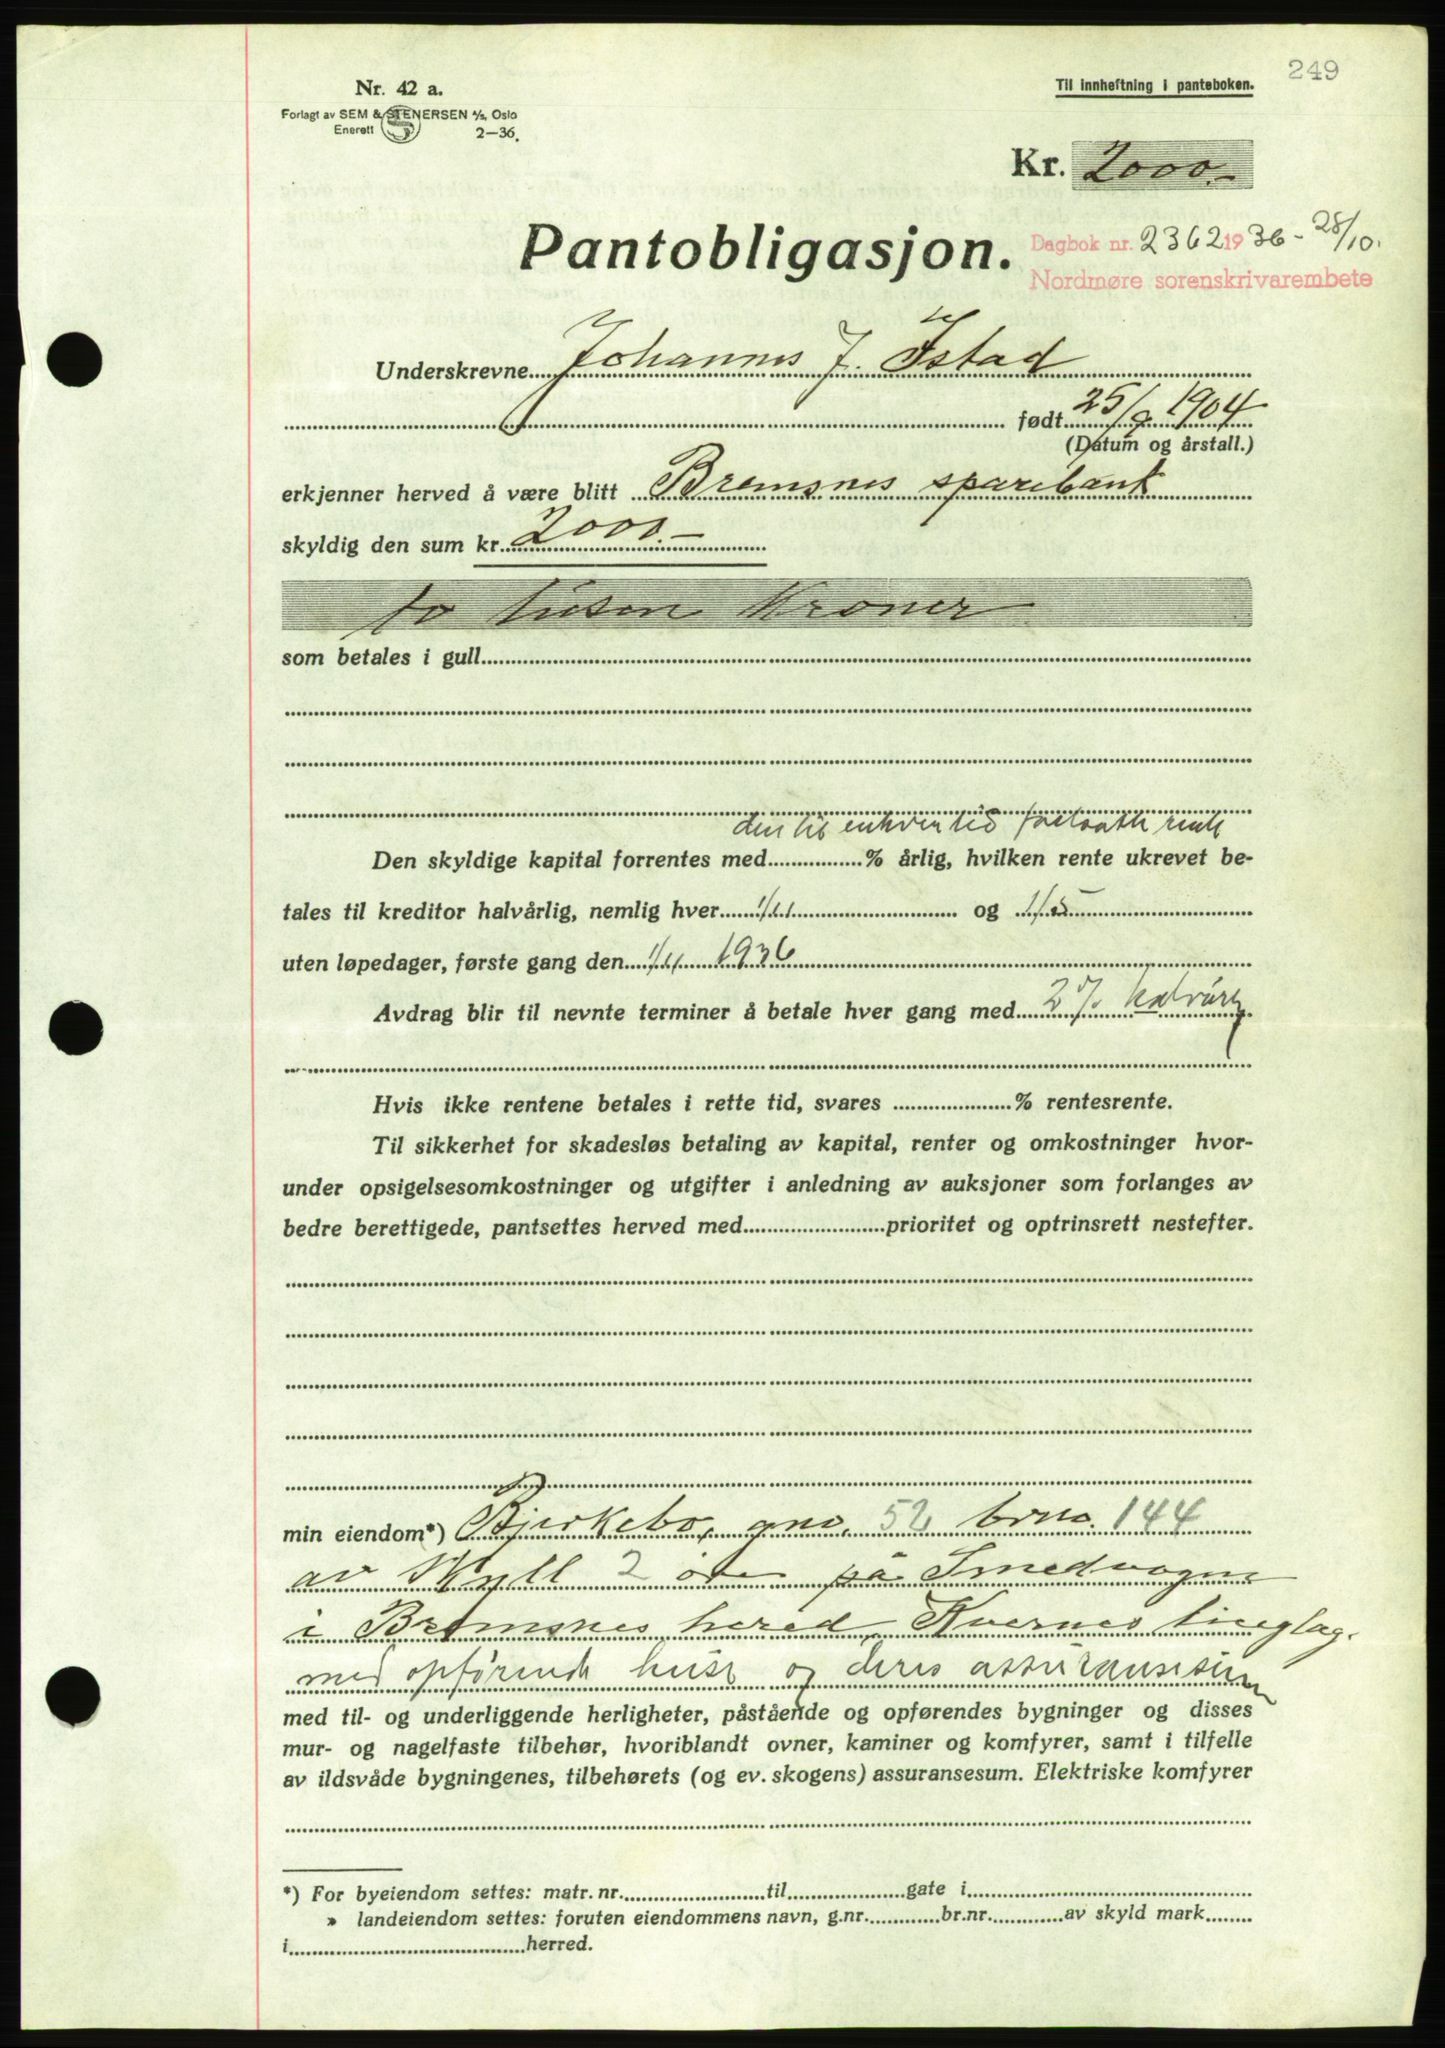 249
Nr. 42 a.
Til innheftning i panteboken.
Forlagt av SEM & STENERSEN A/S, Oslo
Enerett 2—36.
Kr. 2000.-
Pantobligasjon.
Dagbok nr. 2362 1936 - 28/10.
Nordmøre sorenskrivarembete
Underskrevne Johannes J. Istad
født 25/9 1904
(Datum og årstall.)
erkjenner herved å være blitt Bremsnes sparebank
skyldig den sum kr. 2000.-
to tusen Kroner
som betales i gull
den til enhver tid fastsatte rente
Den skyldige kapital forrentes med % årlig, hvilken rente ukrevet be-
tales til kreditor halvårlig, nemlig hver 1/11 og 1/5
uten løpedager, første gang den 1/11 1936
Avdrag blir til nevnte terminer å betale hver gang med 2 % halvårlig
Hvis ikke rentene betales i rette tid, svares % rentesrente.
Til sikkerhet for skadesløs betaling av kapital, renter og omkostninger hvor-
under opsigelsesomkostninger og utgifter i anledning av auksjoner som forlanges av
bedre berettigede, pantsettes herved med prioritet og optrinsrett nestefter.
min eiendom*) Bjerkebo, gno. 52 brno. 144
av skyll 2 øre på Smedvågen
i Bremsnes herred, Kvernes tinglag.
med opførende huse og deres assuransesum
med til- og underliggende herligheter, påstående og opførendes bygninger og disses
mur- og nagelfaste tilbehør, hvoriblandt ovner, kaminer og komfyrer, samt i tilfelle
av ildsvåde bygningenes, tilbehørets (og ev. skogens) assuransesum. Elektriske komfyrer
*) For byeiendom settes: matr. nr. til gate i
» landeiendom settes: foruten eiendommens navn, g.nr. br.nr. av skyld mark
i herred.